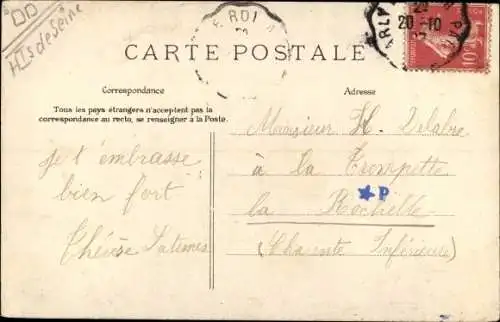 Hts de Seine
20-10
10
CARTE POSTALE
Correspondance
Tous les pays étrangers n'acceptent pas la
correspondance au recto, se renseigner à la Poste.
Je t'embrasse
bien fort
Thérèse
Adresse
Monsieur H. Delabre
à la Trompette
la Rochelle
P
(Charente Inférieure)